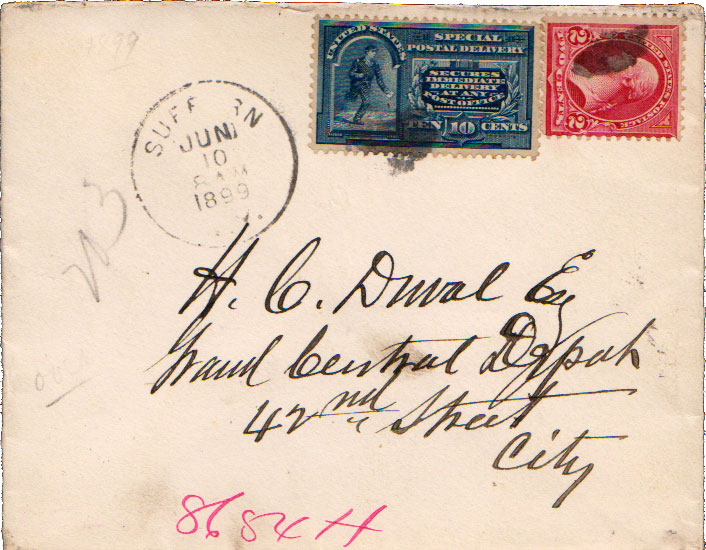 99
UNITED STATES
SPECIAL
POSTAL DELIVERY
SECURES
IMMEDIATE
DELIVERY
AT ANY
POST OFFICE
TEN 10 CENTS
UNITED STATES POSTAGE
2 2
TWO CENTS
SUFF RN
JUN
10
8 AM
1899
H. C. Duval Esq
Grand Central Depot
42nd Street
City
8684H